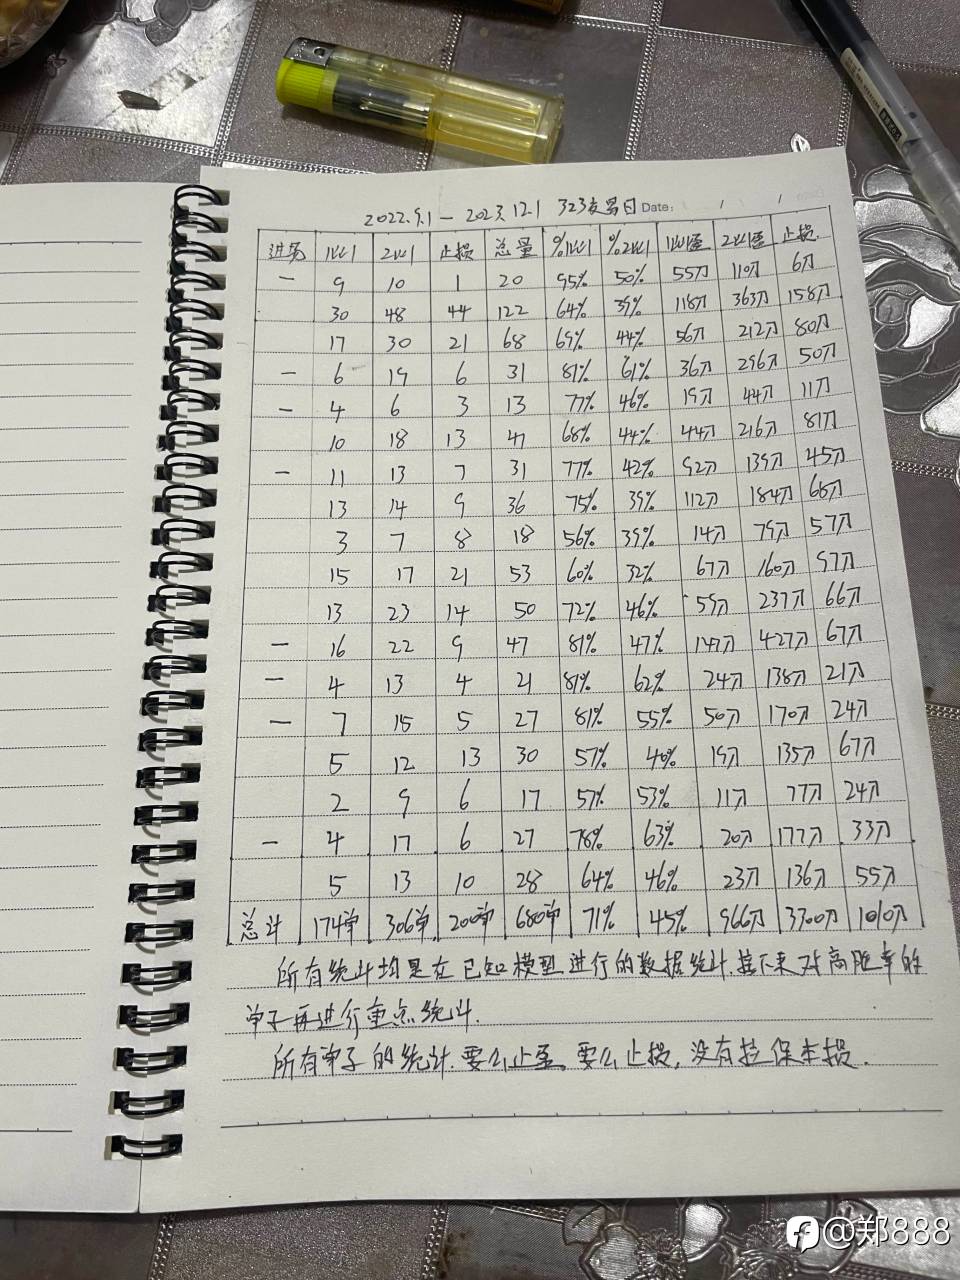 2022.9.1 — 2023.12.1 323交易日 Date:
进场 1比1 2比1 止损 总量 %1比1 %2比1 1比1盈 2比1盈 止损
一 9 10 1 20 95% 50% 55刀 110刀 6刀
30 48 44 122 64% 39% 118刀 363刀 158刀
17 30 21 68 69% 44% 56刀 212刀 80刀
一 6 19 6 31 81% 61% 36刀 296刀 50刀
一 4 6 3 13 77% 46% 19刀 44刀 11刀
10 18 13 41 68% 44% 44刀 216刀 81刀
一 11 13 7 31 77% 42% 92刀 139刀 45刀
13 14 9 36 75% 39% 112刀 184刀 66刀
3 7 8 18 56% 39% 14刀 79刀 57刀
15 17 21 53 60% 32% 67刀 160刀 97刀
13 23 14 50 72% 46% 59刀 237刀 66刀
一 16 22 9 47 81% 47% 147刀 427刀 67刀
一 4 13 4 21 81% 62% 24刀 138刀 21刀
一 7 15 5 27 81% 55% 50刀 170刀 24刀
5 12 13 30 57% 40% 19刀 135刀 67刀
2 9 6 17 57% 53% 11刀 77刀 24刀
一 4 17 6 27 78% 63% 20刀 177刀 33刀
5 13 10 28 64% 46% 23刀 136刀 55刀
总计 174单 306单 200单 680单 71% 45% 966刀 3300刀 1010刀
所有统计均是在已知模型进行的数据统计.接下来对高胜率的
单子再进行重点统计.
所有单子的统计.要么止盈.要么止损,没有拉保本损.
@郑888